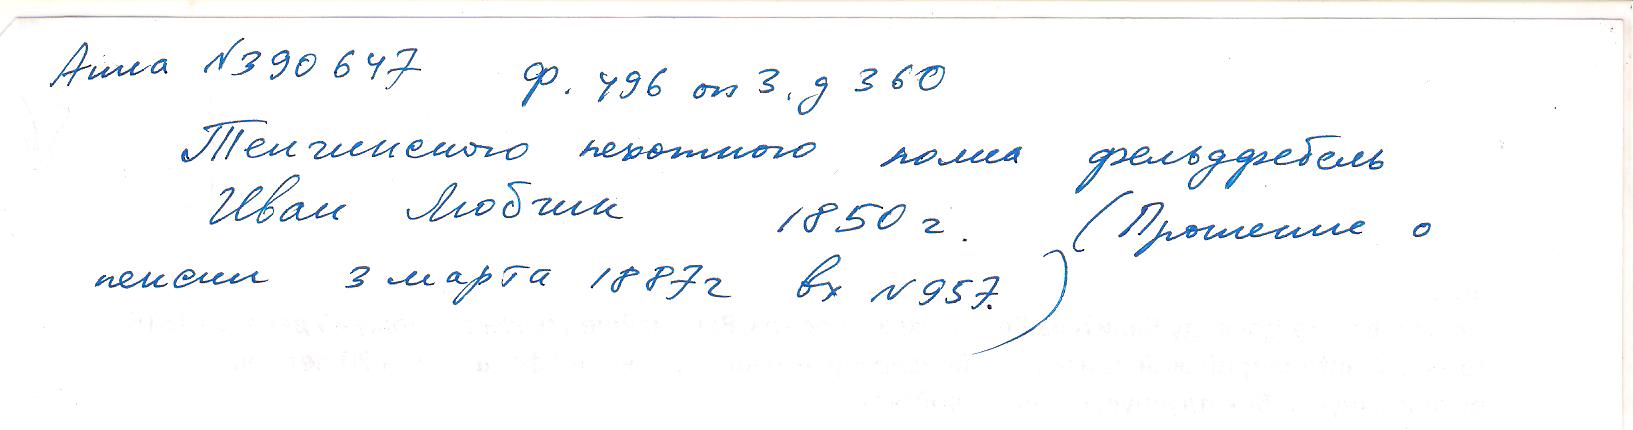 Анна №390647 ф. 496 оп 3. д 360
Тенгинского пехотного полка фельдфебель
Иван Любчик 1850 г. (Прошение о
пенсии 3 марта 1887г вх №957.)